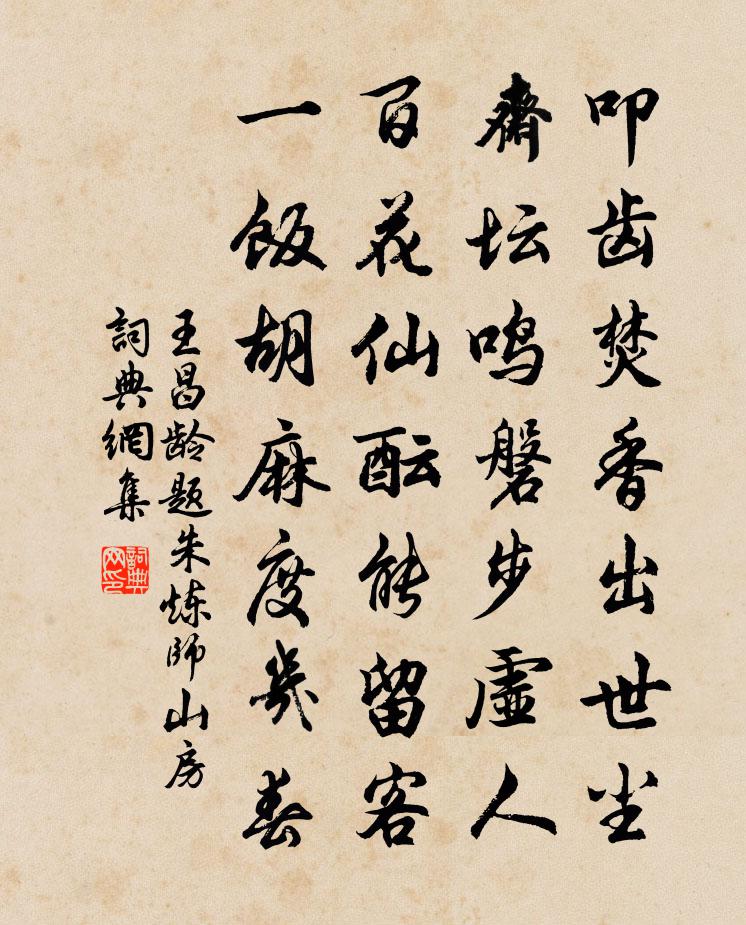 叩齿焚香出世尘
齋坛鸣磬步虚人
百花仙酝能留客
一饭胡麻度幾春
王昌龄题朱炼師山房
詞典網集
詞典网印